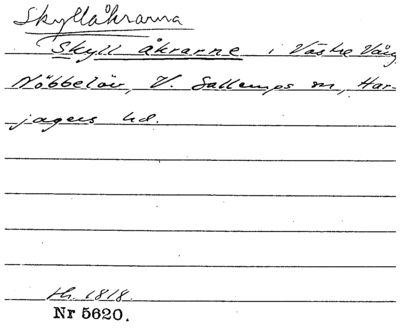 Skyllåkrarna
Skyll åkrarne i Västre Vång
Nöbbelöv, V. Sallerups sn, Har-
jagers hd.
sh. 1818.
Nr 5620.